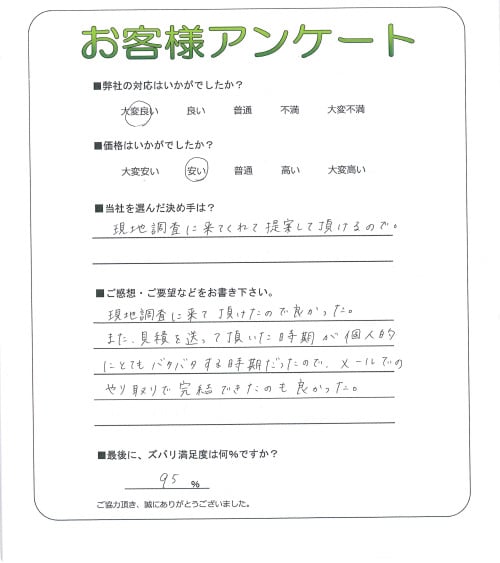 お客様アンケート
■弊社の対応はいかがでしたか？
大変良い 良い 普通 不満 大変不満
■価格はいかがでしたか？
大変安い 安い 普通 高い 大変高い
■当社を選んだ決め手は？
現地調査に来てくれて提案して頂けるので。
■ご感想・ご要望などをお書き下さい。
現地調査に来て頂けたので良かった。
また、見積を送って頂いた時期が個人的
にとてもバタバタする時期だったので、メールでの
やり取りで完結できたのも良かった。
■最後に、ズバリ満足度は何%ですか？
95 %
ご協力頂き、誠にありがとうございました。